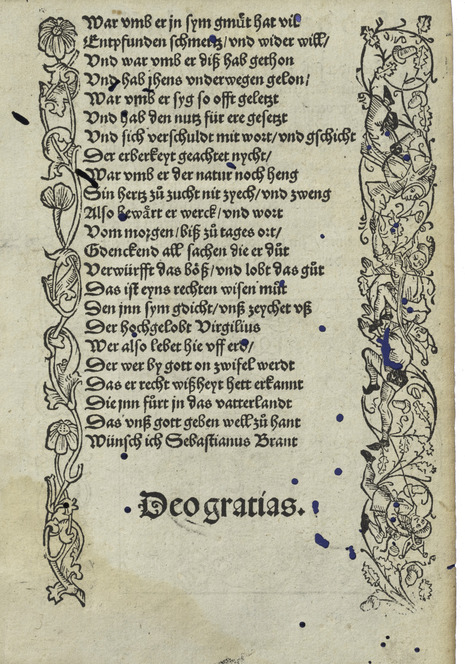 War vmb er jn sym gmuͤt hat vil
Entpfunden schmertz/ vnd wider will/
Vnd war vmb er diß hab gethon
Vnd hab jhens vnderwegen gelon/
War vmb er syg so offt geletzt
Vnd hab den nutz für ere gesetzt
Vnd sich verschuldt mit wort/ vnd gschicht
Der erberkeyt geachtet nycht/
War vmb er der natur noch heng
Sin hertz zuͦ zucht nit zyech/ vnd zweng
Also bewaͤrt er werck/ vnd wort
Vom morgen/ biß zuͦ tages ort/
Gdenckend all sachen die er duͦt
Verwürfft das boͤß/ vnd lobt das guͦt
Das ist eyns rechten wisen muͦt
Den jnn sym gdicht/ vnß zeychet vß
Der hochgelobt Virgilius
Wer also lebet hie vff erd/
Der wer by gott on zwifel werdt
Das er recht wißheyt hett erkannt
Die jnn fürt jn das vatterlandt
Das vnß gott geben well zuͦ hant
Wünsch ich Sebastianus Brant
Deo gratias.